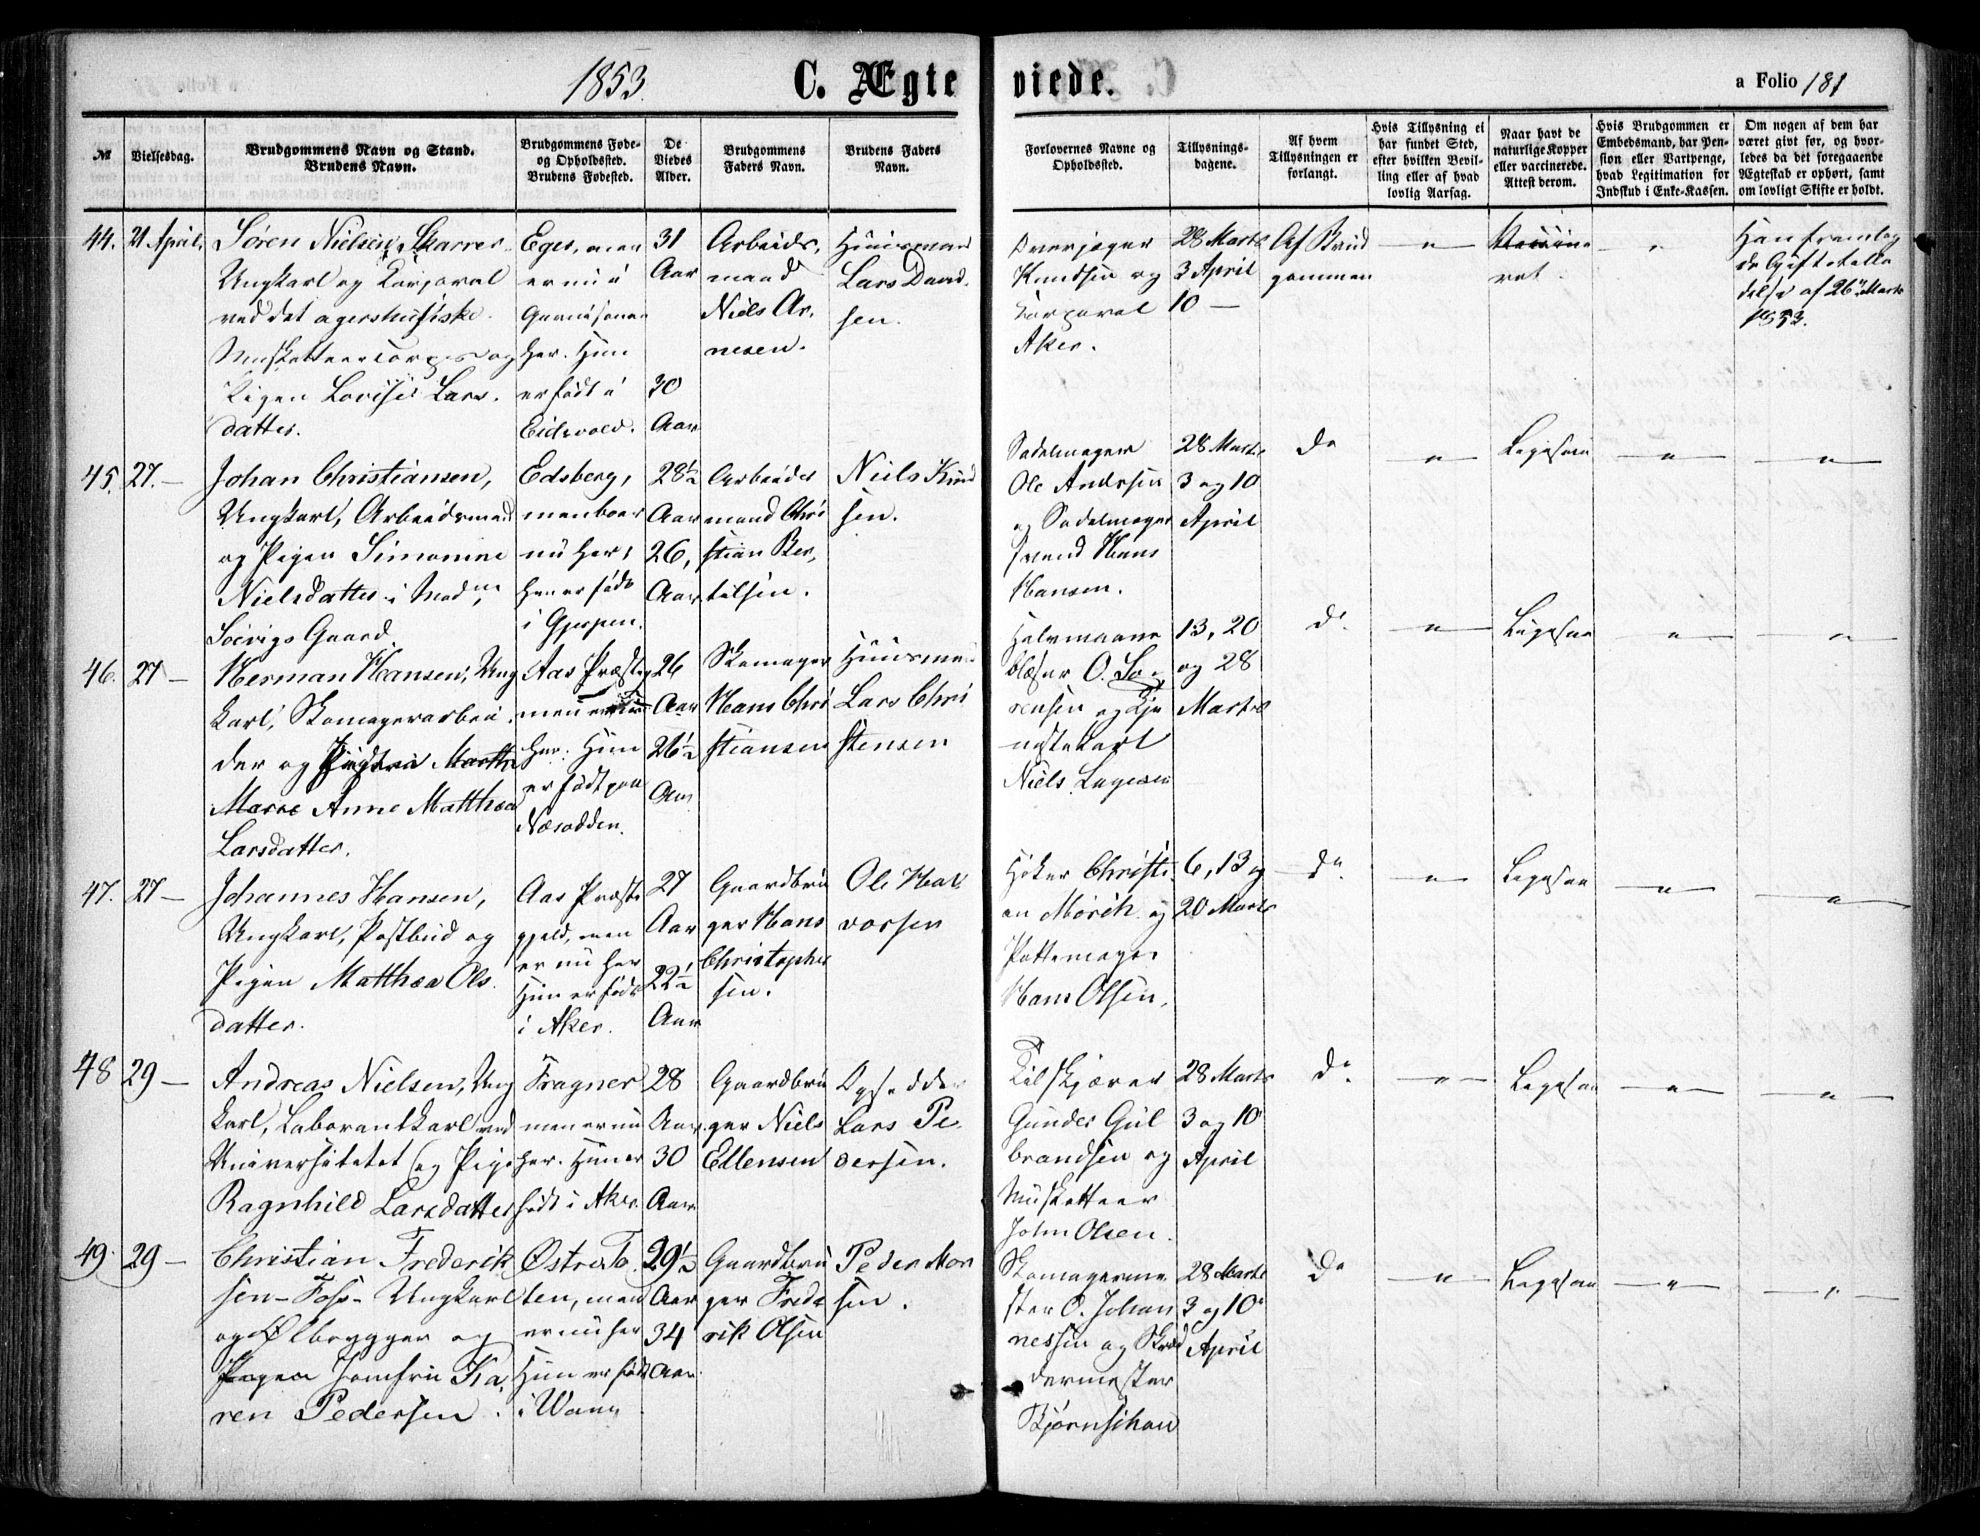 1853.
C. Ægteviede.
a Folio 181
№
Vielsesdag.
Brudgommens Navn og Stand.
Brudens Navn.
Brudgommens Føde-
og Opholdssted.
Brudens Fødested.
De
Viedes
Alder.
Brudgommens
Faders Navn.
Brudens Faders
Navn.
Forlovernes Navne og
Opholdssted.
Tillysnings-
dagene.
Af hvem
Tillysningen er
forlangt.
Hvis Tillysning ei
har fundet Sted,
efter hvilken Bevil-
ling eller af hvad
lovlig Aarsag.
Naar havt de
naturlige Kopper
eller vaccinerede.
Attest derom.
Hvis Brudgommen er
Embedsmand, har Pen-
sion eller Vartpenge,
hvad Legitimation for
Indskud i Enke-Kassen.
Om nogen af dem har
været givt før, og hvor-
ledes da det foregaaende
Ægteskab er ophørt, samt
om lovligt Skifte er holdt.
44. 21 April.
Søren Nielsen Skarres
Ungkarl og Corporal
ved det agershusiske
Musketteercorps og
Pigen Lovise Lars-
datter.
Eger, men
er nu i
Garnisonen
her. Hun
er født i
Eidsvold.
31
Aar
30
Aar
Arbeids-
mand
Niels Ar-
nesen.
Huusmand
Lars David-
sen.
Overjæger
Knudsen og
Corporal
Aker.
28 Marts
3 April
10 —
Af Brud
gommen
— " —
Vaccine
ret.
"
Han fremlag
de Giftetilla
delse af 26 Marts
1853.
45. 27. —
Johan Christiansen,
Ungkarl, Arbeidsmand
og Pigen Simonine
Nielsdatter i Mad
Soevigs Gaard.
Edsberg,
men boer
nu her,
Hun er født
i Gjerpen.
28½
Aar
26,
Aar
Arbeids
mand Chri
stian Ber-
telsen.
Niels Knud
sen.
Sadelmager
Ole Andersen
og Sadelmager
svend Hans
Hansen.
28 Marts
3 og 10
April
do
— " —
Ligesaa
— " —
— " —
46. 27 —
Herman Hansen, Ung
karl, Skomagerarbei-
der og Pigen Martha
Marie Anne Matthea
Larsdatter.
Aas Præsteg
men er nu
her. Hun
er født paa
Næsodden.
26
Aar
26½
Aar
Skomager
Hans Chri
stiansen
Huusmand
Lars Chri
stensen
Halvmaane
blæser O. So-
rensen og Tje
nestekarl
Niels Lagesen
13, 20
og 28
Marts
do
— " —
Ligesaa
— " —
"
47. 27 —
Johannes Hansen,
Ungkarl, Postbud og
Pigen Matthea Ols-
datter.
Aas Præste
gjeld, men
er nu her
Hun er født
i Aker.
27
Aar
22½
Aar
Gaardbru
ger Hans
Christopher
sen.
Ole Hal-
vorsen
Høker Christi-
an Mørch og
Pottemager
Hans Olsen.
6, 13 og
20 Marts
do
— " —
Ligesaa
— " —
— " —
48 29 —
Andreas Nielsen, Ung
karl, Laborantkarl ved
Universitetet og Pige
Ragnhild Larsdatter
Tragner
men er nu
her. Hun er
født i Aker
28
Aar
30
Aar
Gaardbru
ger Niels
Ellensen
Opsidder
Lars Pe-
dersen.
Filskjærer
Gunder Gul
brandsen og
Musketteer
John Olsen.
28 Marts
3 og 10
April
do
— " —
Ligesaa
— " —
— " —
49. 29 —
Christian Frederik
sen Foss Ungkarl
og Ølbrygger og
Pigen Jomfru Ka-
ren Pedersen.
Østre To
ten, men
er nu her
Hun er født
i Wang
29½
Aar
34
Aar
Gaardbru
ger Frede
rik Olsen
Peder Mor
sen.
Skomagerme
ster O. Johan
nessen og Skræd
dermester
28 Marts
3 og 10
April
do
— " —
Ligesaa
— " —
— " —